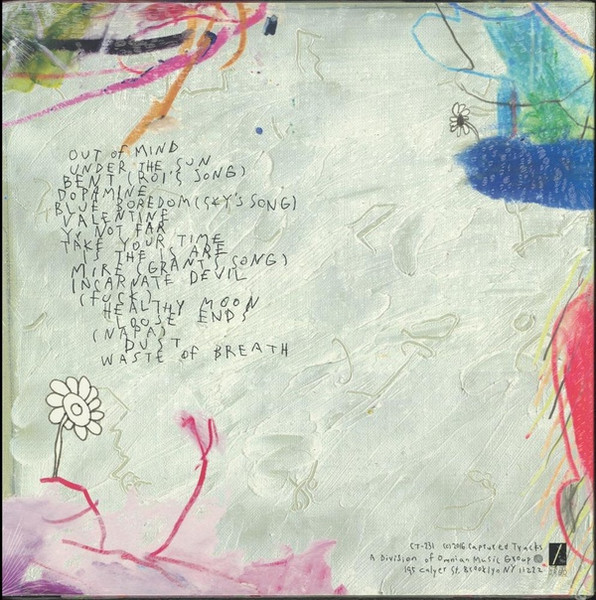 OUT OF MIND
UNDER THE SUN
BENT (ROI'S SONG)
DOPAMINE
BLUE BOREDOM (SKY'S SONG)
VALENTINE
YR NOT FAR
TAKE YOUR TIME
IS THE IS ARE
MIRE (GRANT'S SONG)
INCARNATE DEVIL
(FUCK)
HEALTHY MOON
LOOSE ENDS
(NAPA)
DUST
WASTE OF BREATH
CT-231 (c)2016 Captured Tracks
A Division of Omnian Music Group
195 Calyer St. Brooklyn NY 11222